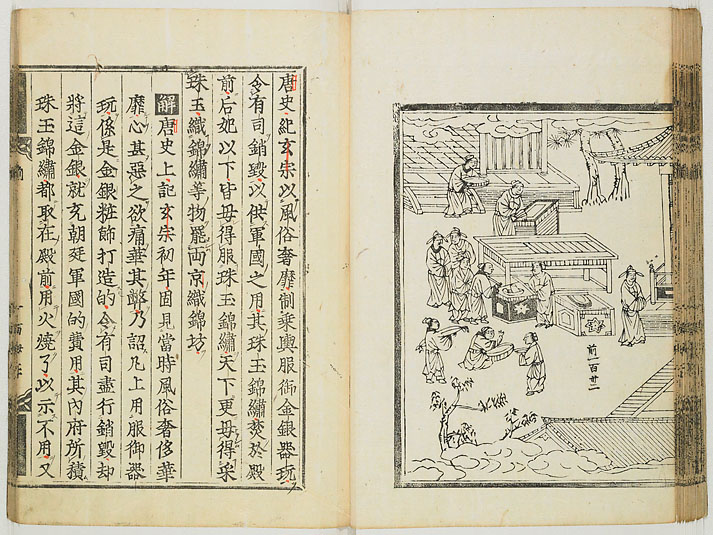 前一百廿二
唐史紀玄宗以風俗奢靡制乘輿服御金銀器玩
令有司銷毀以供軍國之用其珠玉錦繡焚於殿
前后妃以下皆毋得服珠玉錦繡天下更毋得采
珠玉織錦繡等物罷兩京織錦坊
解唐史上記玄宗初年因見當時風俗奢侈華
靡心甚惡之欲痛革其弊乃詔凡上用服御器
玩係是金銀粧飾打造的令有司盡行銷毀却
將這金銀就充朝廷軍國的費用其內府所積
珠玉錦繡都取在殿前用火燒了以示不用又